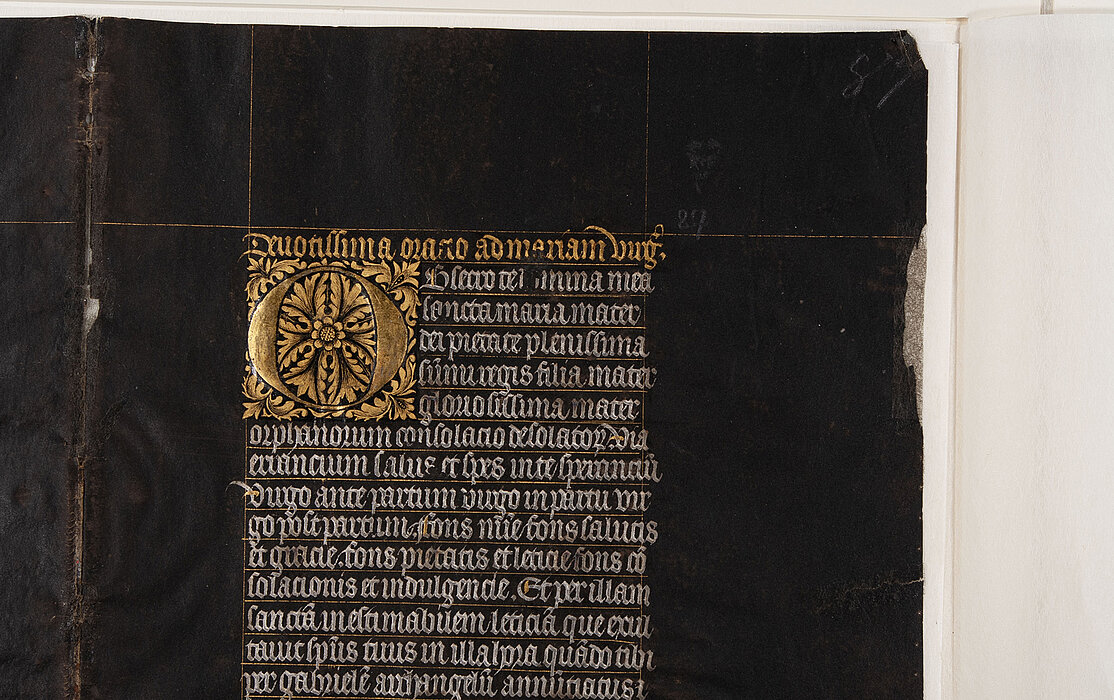 87
87
Deuotissima oracio ad mariam virg.
Obsecro te domina mea
sancta maria mater
dei pietate plenissima
sūmi regis filia mater
gloriosissima mater
orphanorum cōsolacio desolatoꝝ. via
errancium salus et spes in te speranciū
Virgo ante partum virgo in partu vir
go post partum. Fons mīe fons salutis
et gracie. fons pietatis et leticie fons cō
solacionis et indulgencie. Et per illam
sanctā inestimabilem leticiā qua exul
tauit spūs tuus in illa hora quādo tibi
per gabrielē archangelū annūciatus